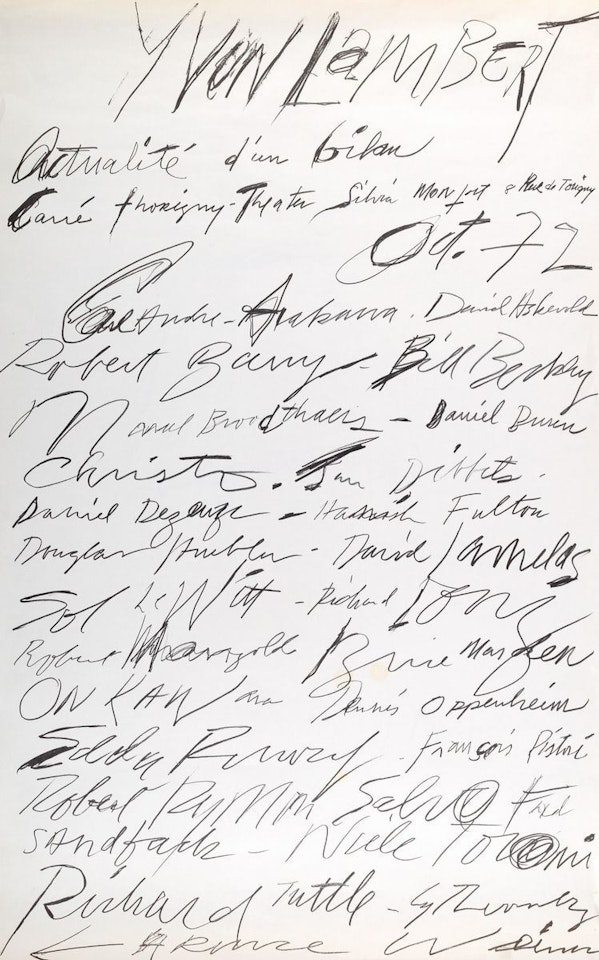 YVON LAMBERT
Actualité d'un bilan
Carré Thorigny-Theater Silvia Monfort 8 Rue de Torigny
Oct. 72
Carl Andre - Arakawa. David Askevold
Robert Barry - Bill Beckley
Marcel Broodthaers - Daniel Buren
Christo. Jan Dibbets.
Daniel Dezeuze - Hamish Fulton
Douglas Huebler - David Lamelas
Sol LeWitt - Richard Long
Robert Mangold Brice Marden
ON KAWara Dennis Oppenheim
Edda Renouf - François Ristori
Robert Ryman Salvo Fred
SANdback - Niele Toroni
Richard Tuttle - Cy Twombly
Weiner